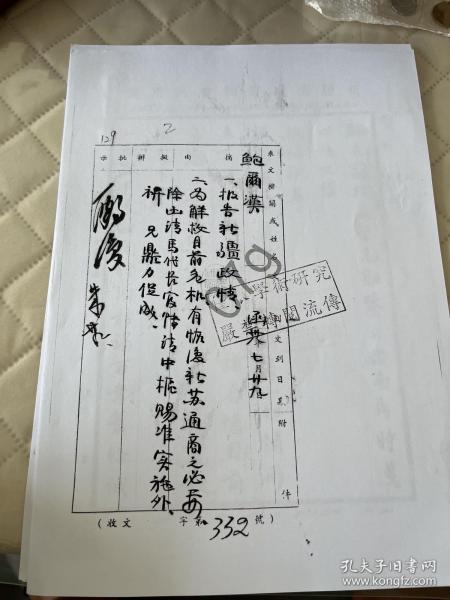 129
2
來文機關或姓名
鮑爾漢
文到日期
七月廿九
附件
摘由
一、报告新疆政情
二、为解救目前危机有恢復新苏通商之必要
除函请馬代长官转请中枢赐准实施外、
祈 兄鼎力促成、
擬辦
批示
學術研究
嚴禁
流傳
(收文 字第 332 號)
孔夫子旧书网
www.kongfz.com